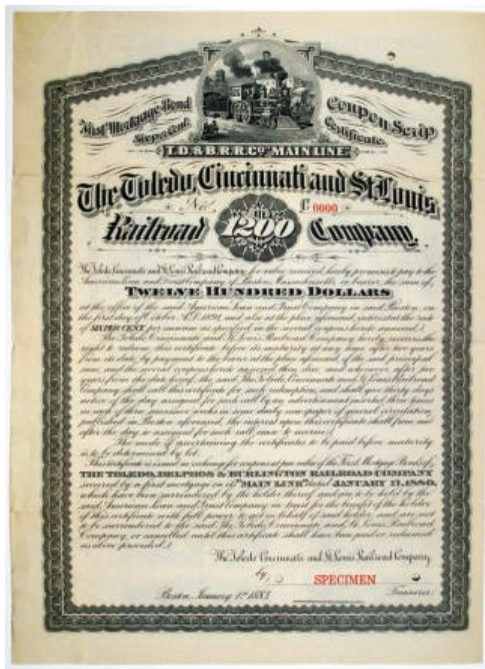 First Mortgage Bond
Six per Cent.
Coupon Scrip
Certificate.
T.D. & B.R.R. Co. MAIN LINE
The Toledo, Cincinnati and St. Louis
No. C 0000
Railroad 1200 Company,
The Toledo, Cincinnati and St. Louis Railroad Company, for value received, hereby promises to pay to the
American Loan and Trust Company of Boston, Massachusetts, or bearer, the sum of,
TWELVE HUNDRED DOLLARS
at the office of the said American Loan and Trust Company in said Boston, on
the first day of October A.D. 1890, and also at the place aforesaid, interest at the rate
of SIX PER CENT. per annum as specified in the several coupons hereto annexed.
The Toledo, Cincinnati and St. Louis Railroad Company hereby reserves the
right to redeem this certificate before its maturity at any time after five years
from its date, by payment to the bearer at the place aforesaid, of the said principal
sum, and the several coupons hereto annexed then due, and whenever after five
years from the date hereof, the said The Toledo, Cincinnati and St. Louis Railroad
Company shall call this certificate for such redemption, and shall give thirty days
notice of the day assigned for such call by an advertisement inserted three times
in each of three successive weeks in some daily newspaper of general circulation,
published in Boston aforesaid, the interest upon this certificate shall from and
after the day so assigned for such call cease to accrue.
The mode of ascertaining the certificates to be paid before maturity
is to be determined by lot.
This certificate is issued in exchange for coupons at par value of the First Mortgage Bonds of
THE TOLEDO, DELPHOS & BURLINGTON RAILROAD COMPANY
secured by a first mortgage on its "MAIN LINE" dated JANUARY 17, 1880,
which have been surrendered by the holder thereof and are to be held by the
said American Loan and Trust Company in trust for the benefit of the holder
of this certificate with full power to act in behalf of said holder and are not
to be surrendered to the said The Toledo, Cincinnati and St. Louis Railroad
Company, or cancelled until this certificate shall have been paid or redeemed
as above provided.
The Toledo Cincinnati and St. Louis Railroad Company.
by SPECIMEN
Boston, January 1st 1883. Treasurer.